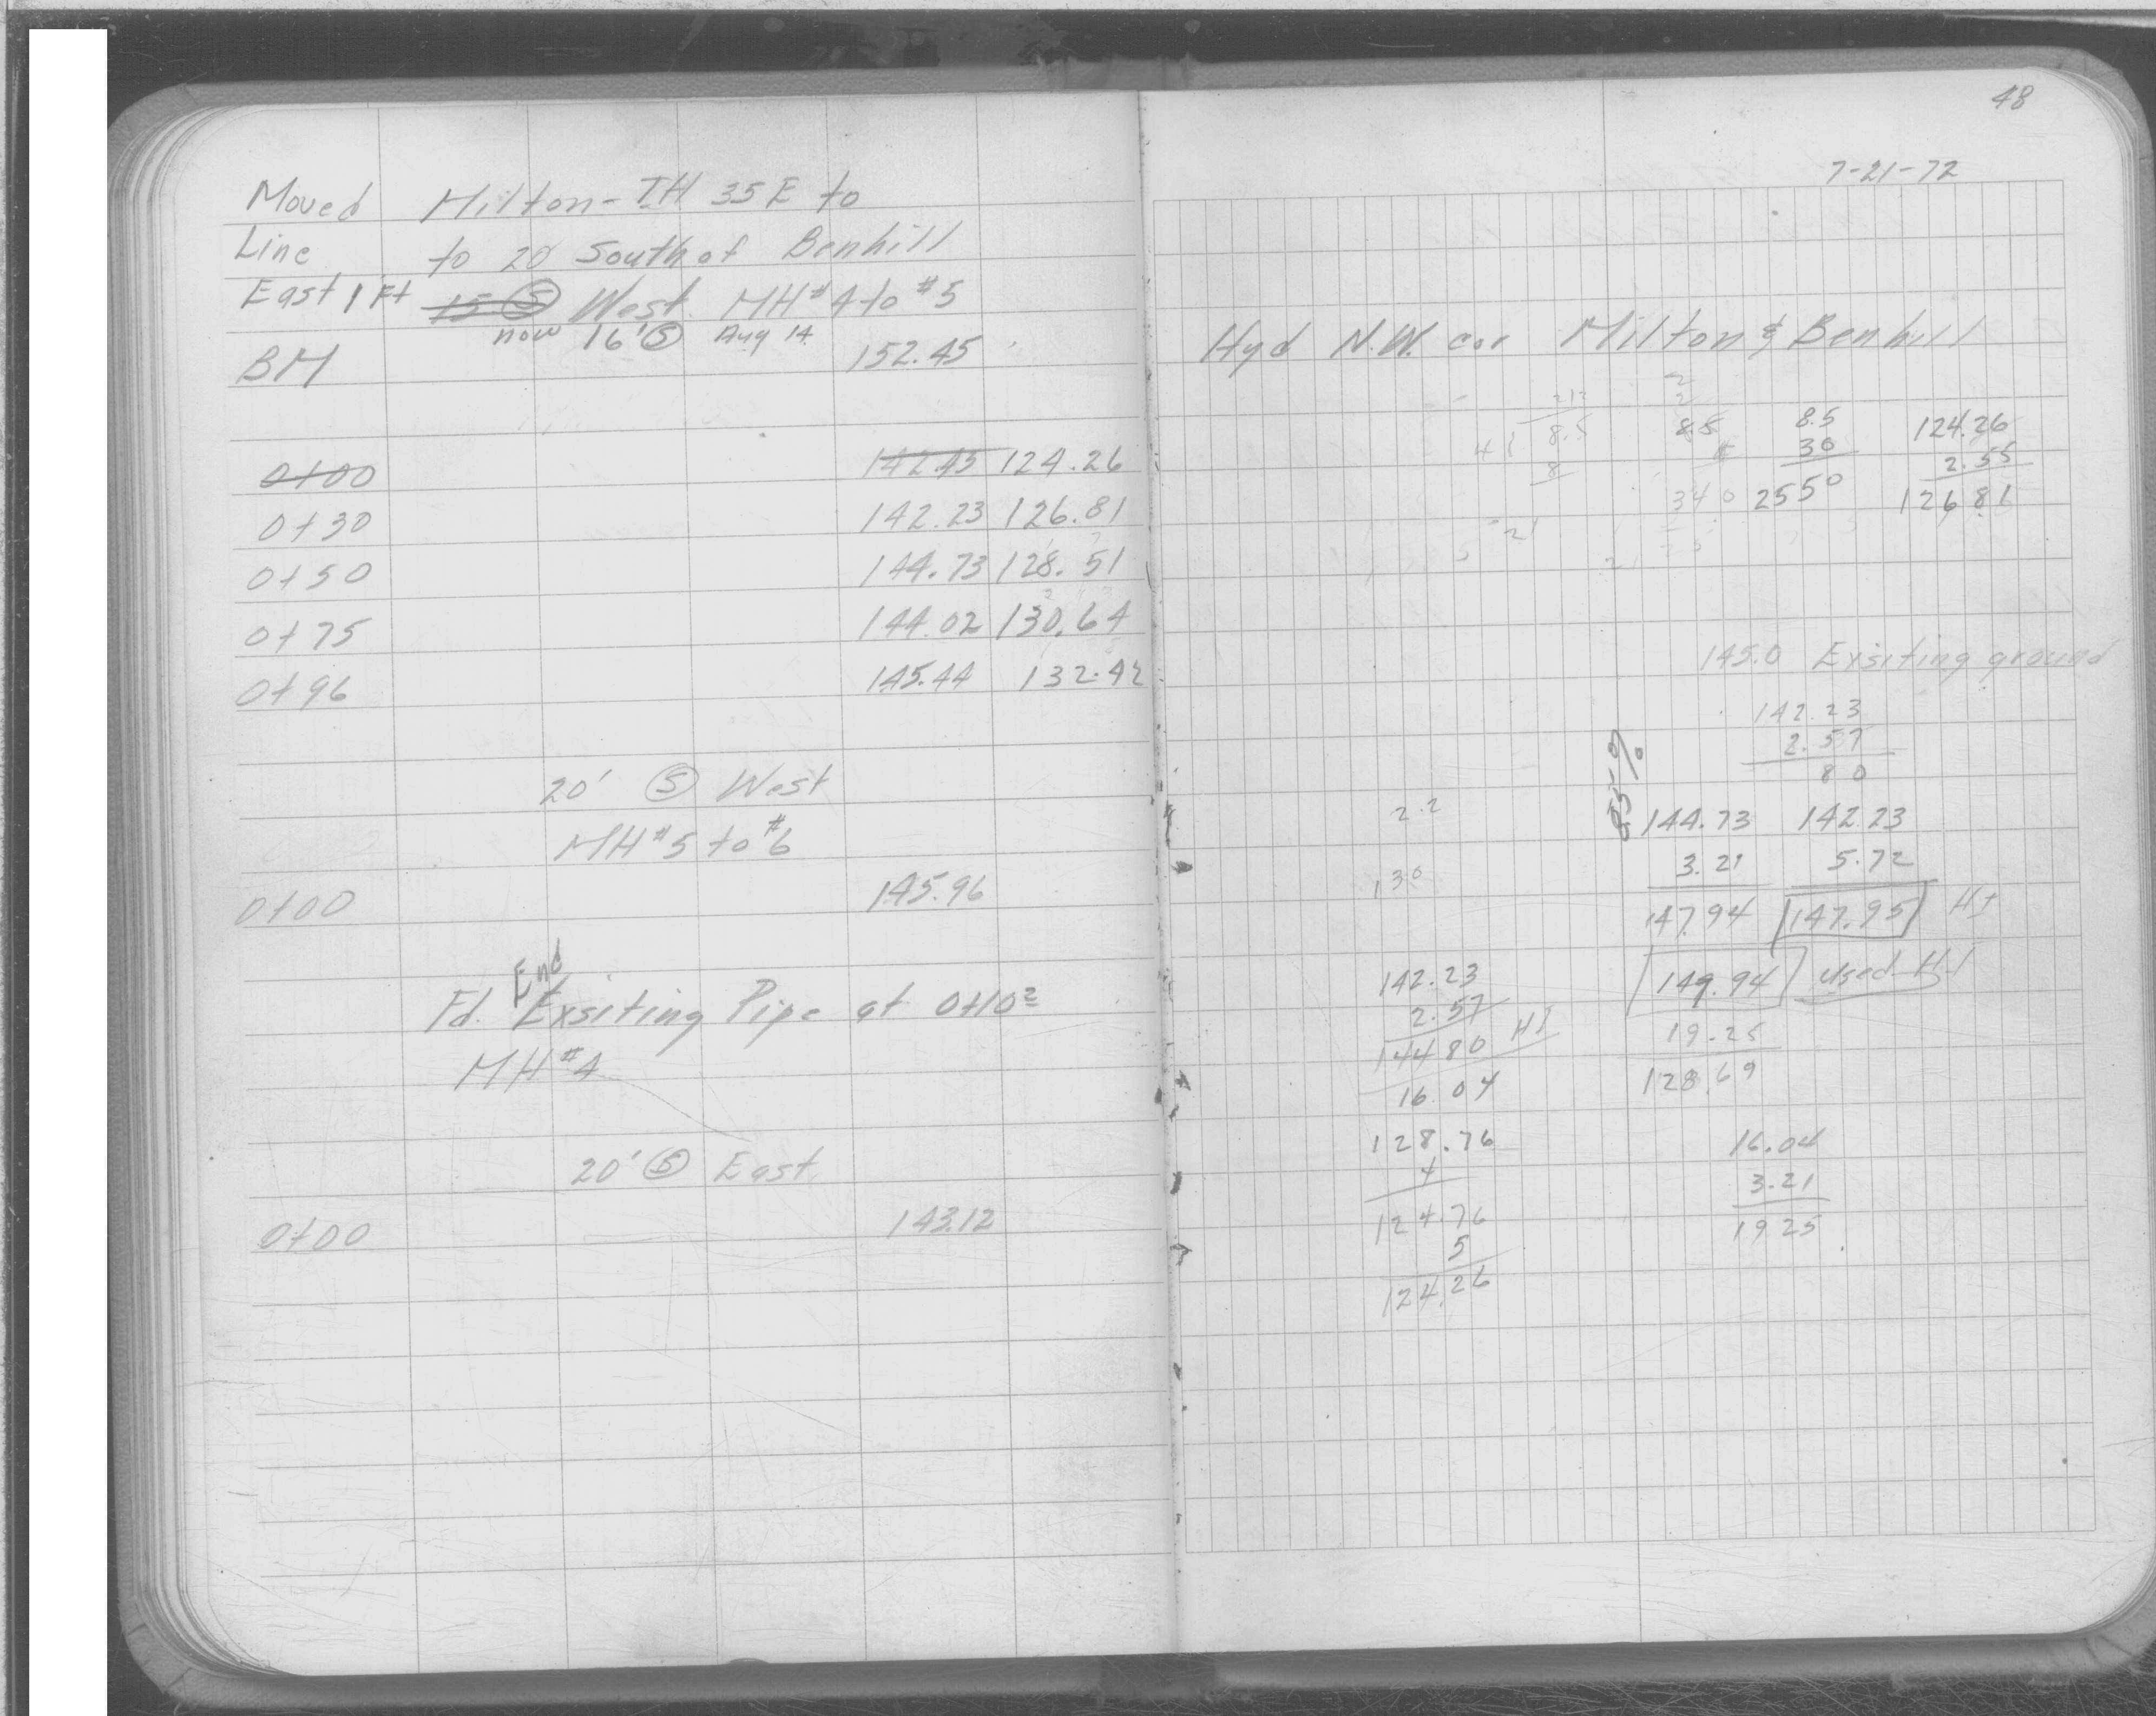 Moved Milton - TH 35E to
Line to 20 South of Benhill
East 1 Ft 15 (S) West MH #4 to #5
now 16' (S) Aug 14
BM 152.45
0+00 142.45 124.26
0+30 142.23 126.81
0+50 144.73 128.51
0+75 144.02 130.64
0+96 145.44 132.42
20' (S) West
MH #5 to #6
0+00 145.96
End
Fd. Exsiting Pipe at 0+10²
MH #4
20' (S) East
0+00 143.12
48
7-21-72
Hyd N.W. cor Milton & Benhill
212
4 8.5
8
2
2
8.5
4
340
8.5
30
2550
124.26
2.55
126.81
21
145.0 Exsiting ground
142.23
2.57
80
8.5%
2.2
130
144.73
3.21
147.94
142.23
5.72
147.95 HI
149.94 Used HI
19.25
128.69
142.23
2.57
144.80 HI
16.04
128.76
4
124.76
5
124.26
16.04
3.21
19.25